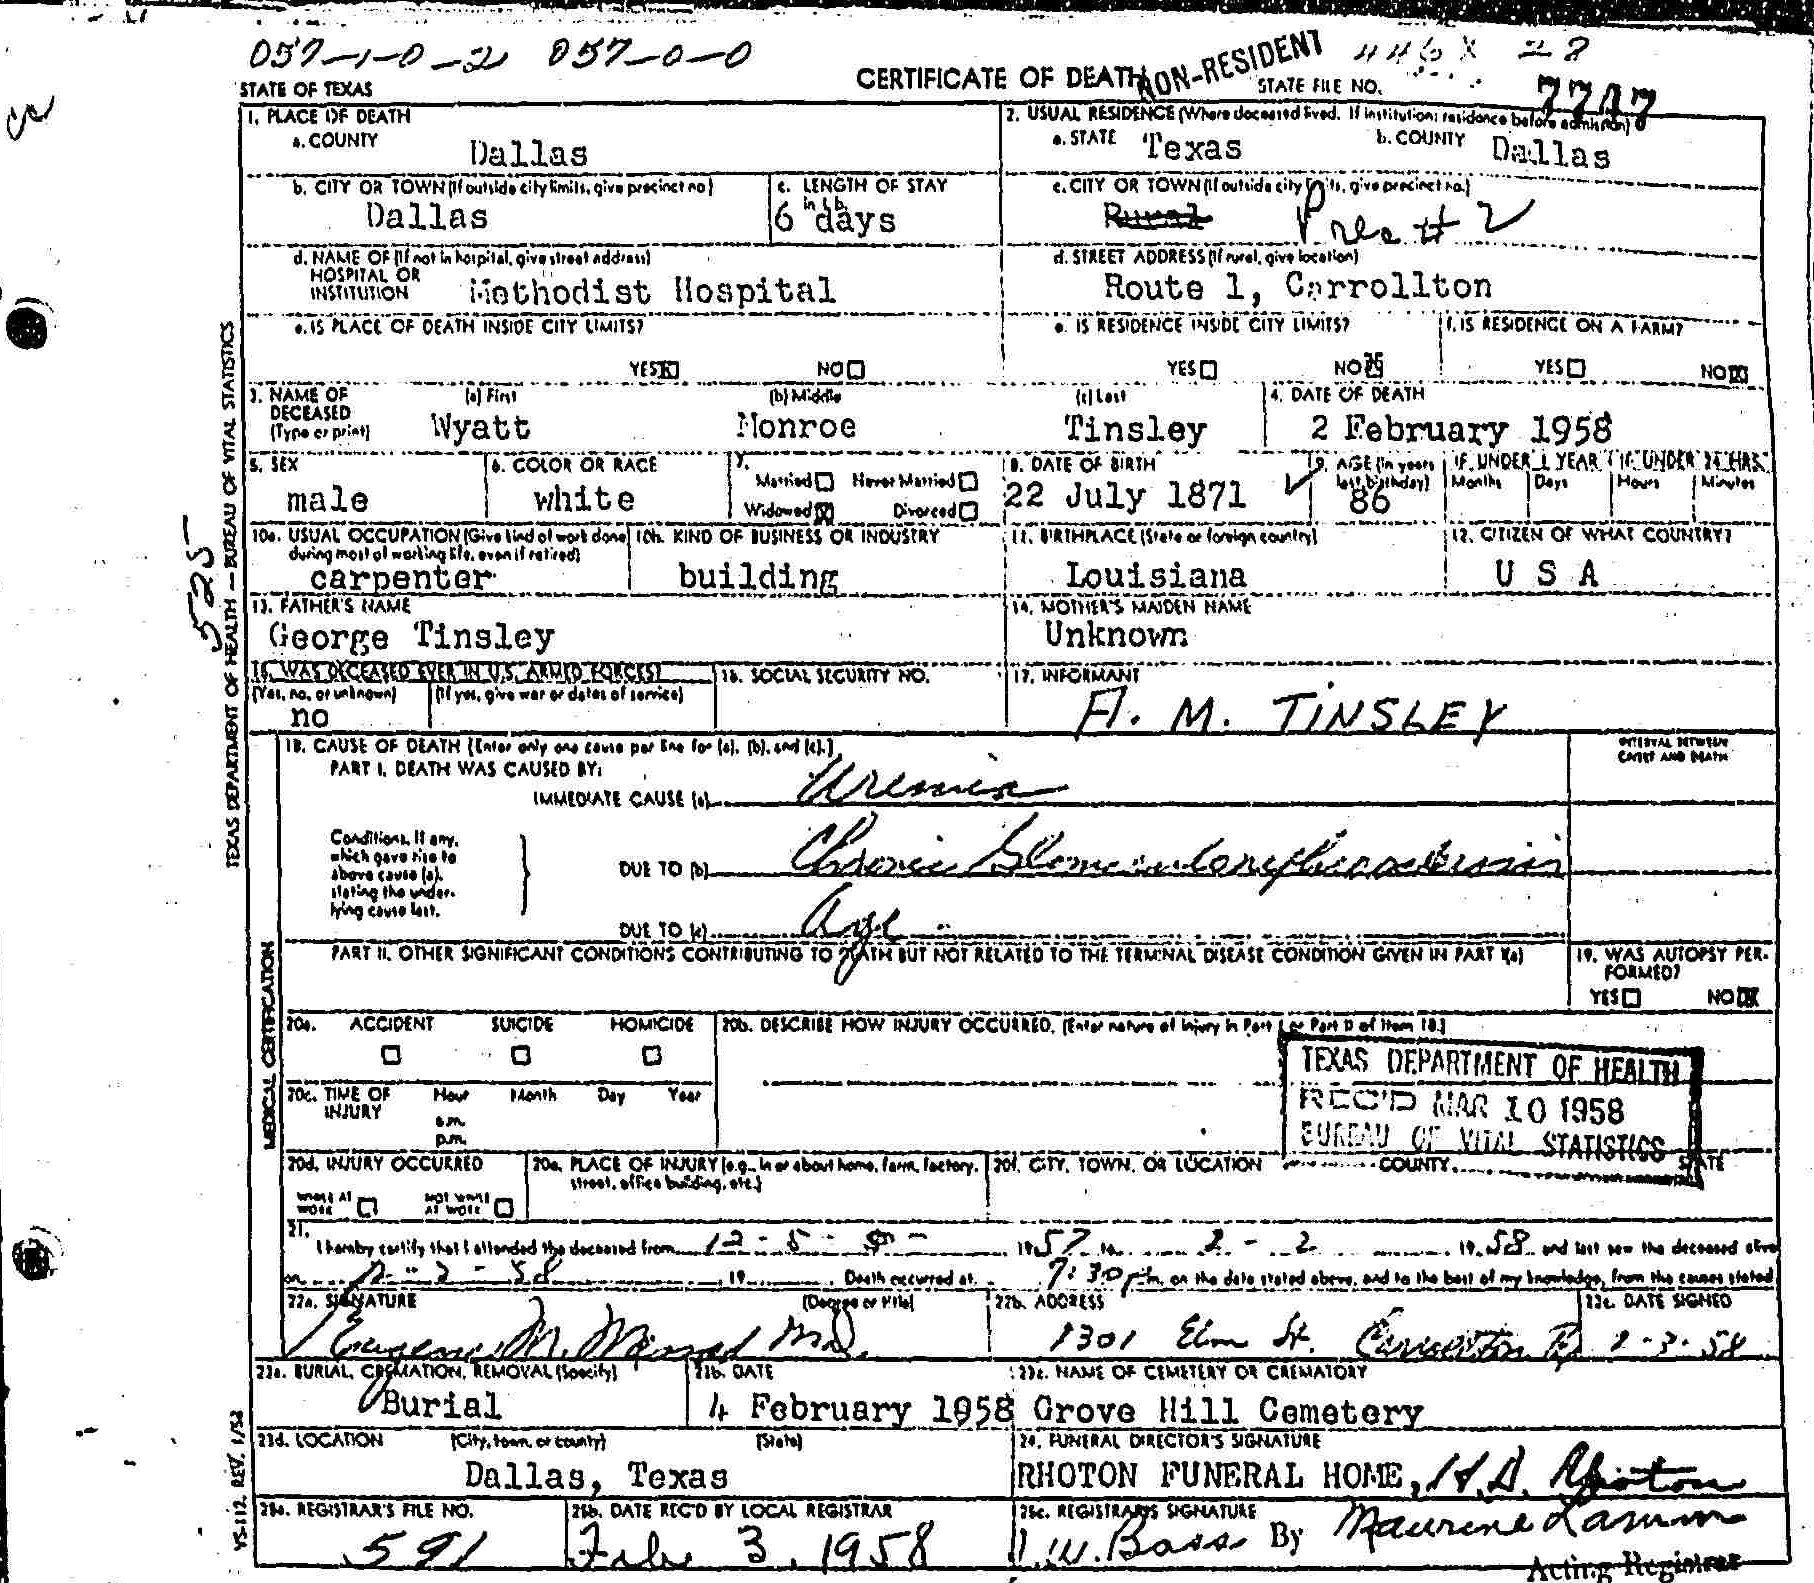 057-1-0-2 057-0-0
NON-RESIDENT
STATE OF TEXAS
CERTIFICATE OF DEATH
STATE FILE NO.
1. PLACE OF DEATH
a. COUNTY
Dallas
2. USUAL RESIDENCE (Where deceased lived. If institution: residence before admission)
a. STATE Texas
b. COUNTY Dallas
b. CITY OR TOWN (If outside city limits, give precinct no)
Dallas
c. LENGTH OF STAY
in 1b.
6 days
c. CITY OR TOWN (If outside city limits, give precinct no.)
Rural Prec # 2
d. NAME OF (If not in hospital, give street address)
HOSPITAL OR
INSTITUTION Methodist Hospital
d. STREET ADDRESS (If rural, give location)
Route 1, Carrollton
e. IS PLACE OF DEATH INSIDE CITY LIMITS?
YES NO
e. IS RESIDENCE INSIDE CITY LIMITS?
YES NO
f. IS RESIDENCE ON A FARM?
YES NO
3. NAME OF
DECEASED
(Type or print)
(a) First
Wyatt
(b) Middle
Monroe
(c) Last
Tinsley
4. DATE OF DEATH
2 February 1958
5. SEX
male
6. COLOR OR RACE
white
7.
Married Never Married
Widowed Divorced
8. DATE OF BIRTH
22 July 1871
9. AGE (In years
last birthday)
86
IF UNDER 1 YEAR
Months Days
IF UNDER 24 HRS.
Hours Minutes
10a. USUAL OCCUPATION (Give kind of work done
during most of working life, even if retired)
carpenter
10b. KIND OF BUSINESS OR INDUSTRY
building
11. BIRTHPLACE (State or foreign country)
Louisiana
12. CITIZEN OF WHAT COUNTRY?
U S A
13. FATHER'S NAME
George Tinsley
14. MOTHER'S MAIDEN NAME
Unknown
15. WAS DECEASED EVER IN U.S. ARMED FORCES?
(Yes, no, or unknown) (If yes, give war or dates of service)
no
16. SOCIAL SECURITY NO.
17. INFORMANT
A. M. TINSLEY
18. CAUSE OF DEATH (Enter only one cause per line for (a), (b), and (c).)
PART I. DEATH WAS CAUSED BY:
IMMEDIATE CAUSE (a) Uremia
INTERVAL BETWEEN
ONSET AND DEATH
Conditions, if any,
which gave rise to
above cause (a),
stating the under-
lying cause last.
DUE TO (b) Chronic
DUE TO (c) Age
PART II. OTHER SIGNIFICANT CONDITIONS CONTRIBUTING TO DEATH BUT NOT RELATED TO THE TERMINAL DISEASE CONDITION GIVEN IN PART I(a)
19. WAS AUTOPSY PER-
FORMED?
YES NO
20a. ACCIDENT SUICIDE HOMICIDE
20b. DESCRIBE HOW INJURY OCCURRED. (Enter nature of injury in Part I or Part II of Item 18.)
20c. TIME OF
INJURY
Hour Month Day Year
a.m.
p.m.
TEXAS DEPARTMENT OF HEALTH
REC'D MAR 10 1958
BUREAU OF VITAL STATISTICS
20d. INJURY OCCURRED
WHILE AT
WORK
NOT WHILE
AT WORK
20e. PLACE OF INJURY (e.g., in or about home, farm, factory,
street, office building, etc.)
20f. CITY, TOWN, OR LOCATION COUNTY STATE
21.
I hereby certify that I attended the deceased from 12-5- 1957 to 2-2 1958 and last saw the deceased alive
on 19 Death occurred at 7:30 p m, on the date stated above, and to the best of my knowledge, from the causes stated
22a. SIGNATURE (Degree or title)
Eugene M. M.D.
22b. ADDRESS
1301 Elm St. Carrollton
22c. DATE SIGNED
2-3-58
23a. BURIAL, CREMATION, REMOVAL (Specify)
Burial
23b. DATE
4 February 1958
23c. NAME OF CEMETERY OR CREMATORY
Grove Hill Cemetery
23d. LOCATION (City, town, or county) (State)
Dallas, Texas
24. FUNERAL DIRECTOR'S SIGNATURE
RHOTON FUNERAL HOME, H.D. Rhoton
25a. REGISTRAR'S FILE NO.
591
25b. DATE REC'D BY LOCAL REGISTRAR
Feb 3, 1958
25c. REGISTRAR'S SIGNATURE
Bass By Maurine
Acting Registrar
TEXAS DEPARTMENT OF HEALTH — BUREAU OF VITAL STATISTICS
5525
MEDICAL CERTIFICATION
VS-112. REV. 1/52